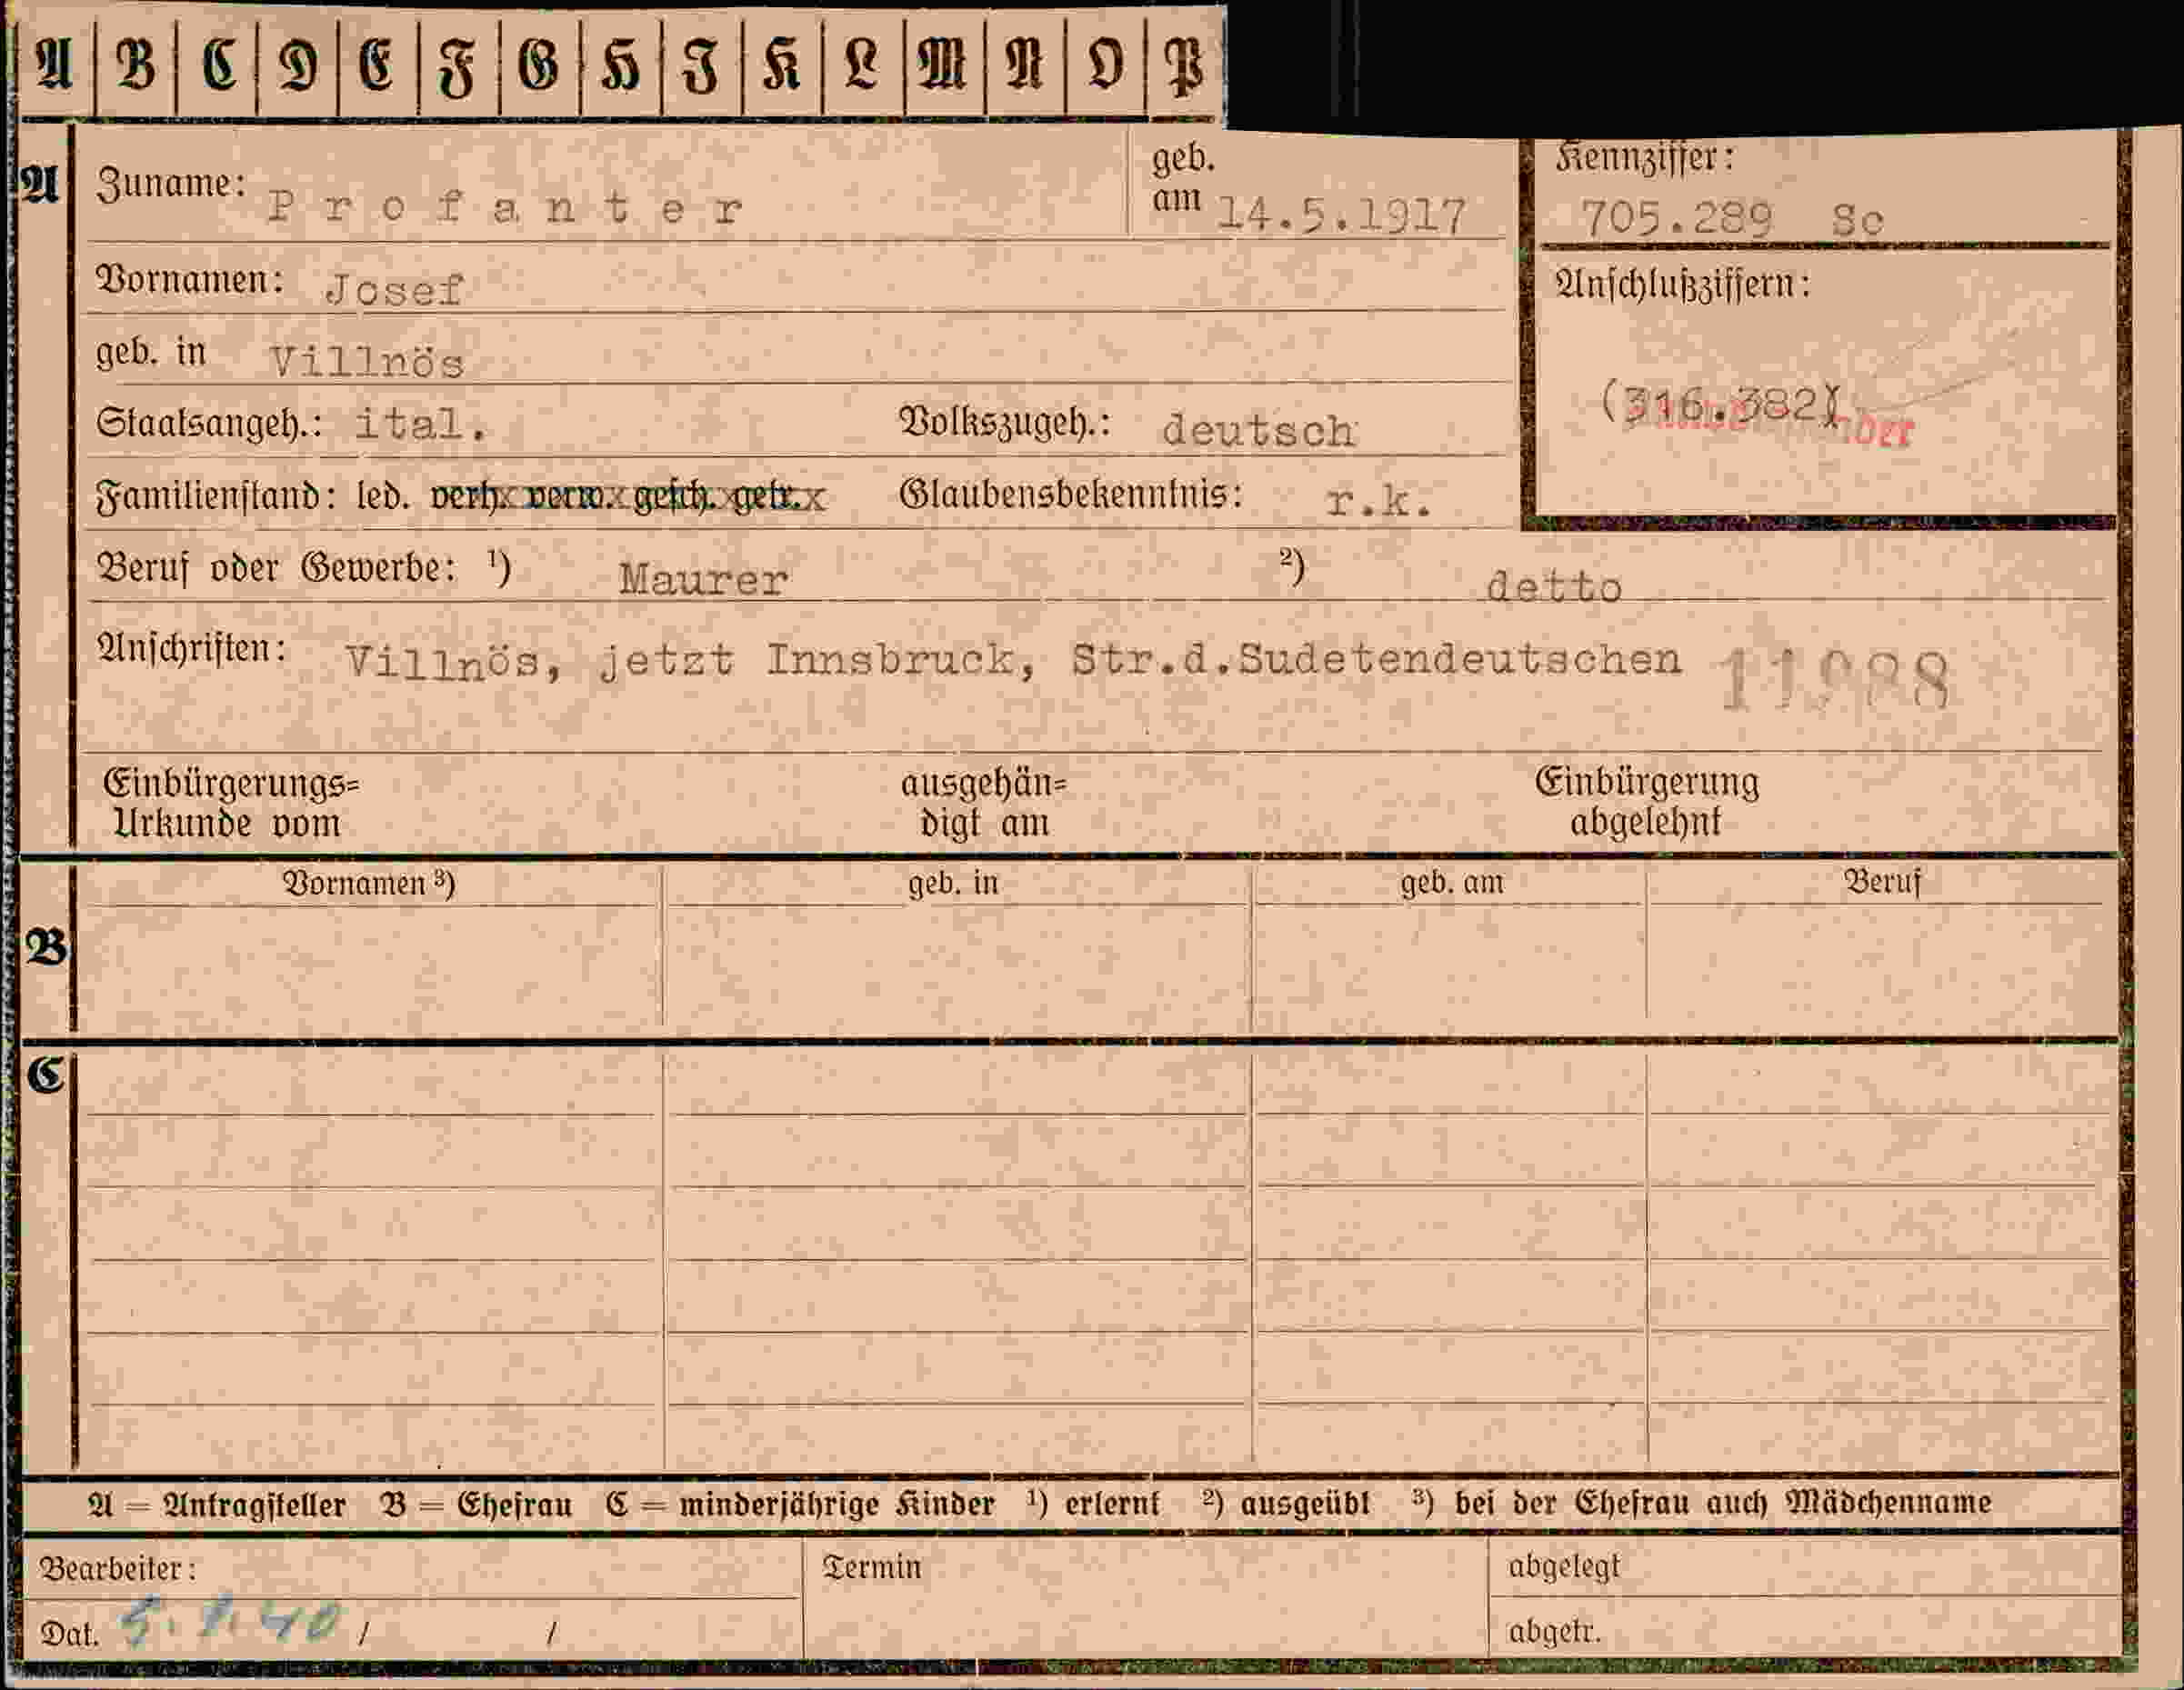 A B C D E F G H I K L M N O P
A Zuname: Profanter geb. am 14.5.1917 Kennziffer: 705.289 Sc
Vornamen: Josef Anschlußziffern:
geb. in Villnös
(316.382)
Staatsangeh.: ital. Volkszugeh.: deutsch
Familienstand: led. verh. verw. gesch. getr. Glaubensbekenntnis: r.k.
Beruf oder Gewerbe: ¹) Maurer ²) detto
Anschriften: Villnös, jetzt Innsbruck, Str.d.Sudetendeutschen
Einbürgerungs= ausgehän= Einbürgerung
Urkunde vom digt am abgelehnt
Vornamen ³) geb. in geb. am Beruf
B
C
A = Antragsteller B = Ehefrau C = minderjährige Kinder ¹) erlernt ²) ausgeübt ³) bei der Ehefrau auch Mädchenname
Bearbeiter: Termin abgelegt
Dat. / / abgetr.